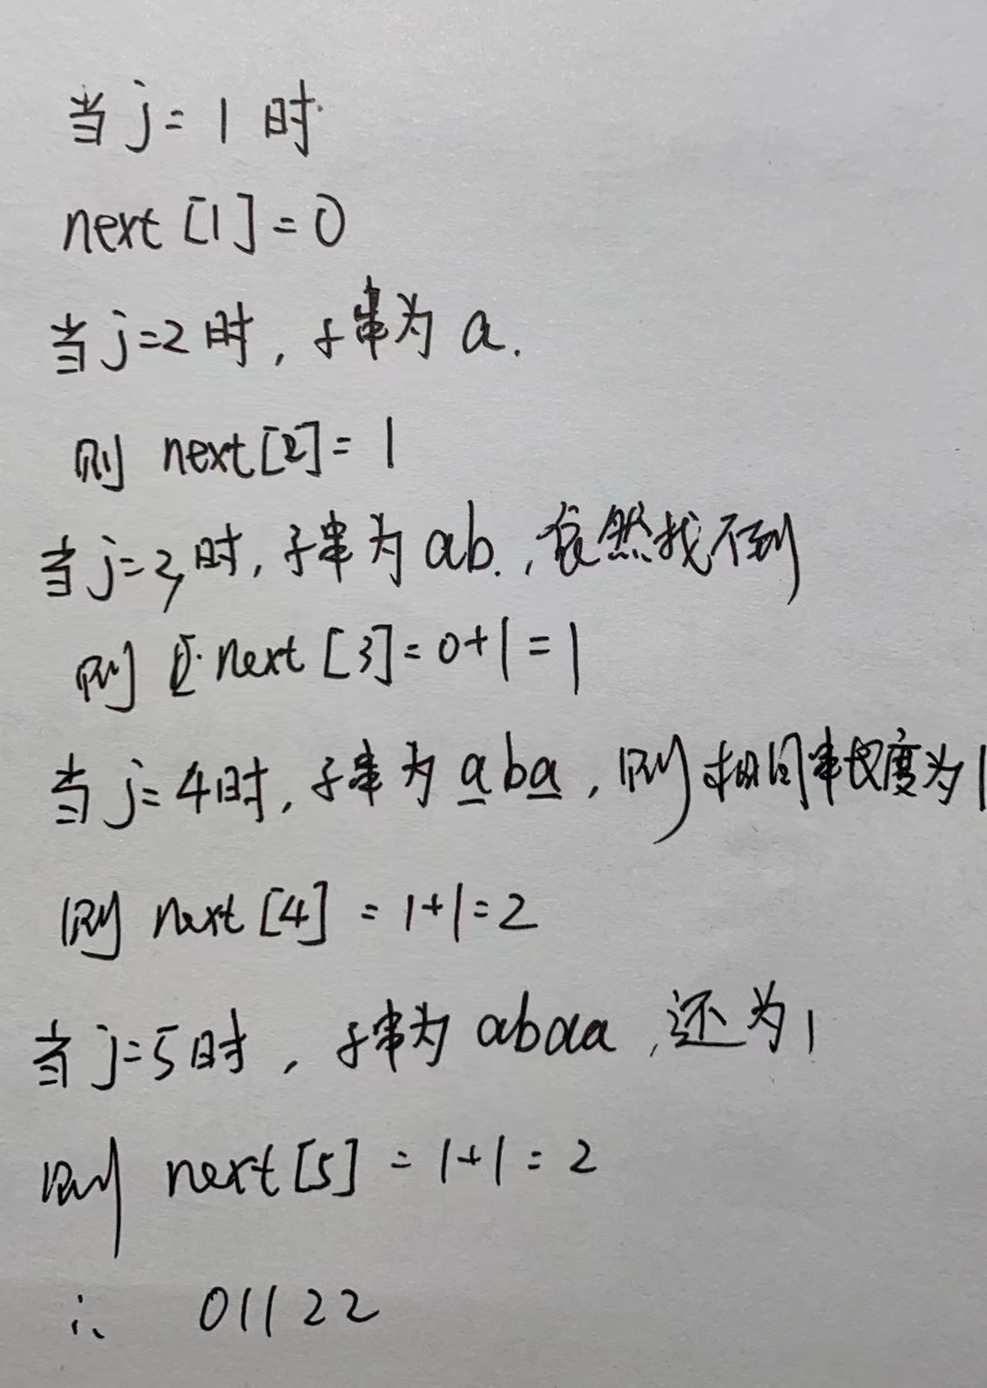 当j=1时
next[1]=0
当j=2时,子串为a.
则 next[2]=1
当j=3时,子串为ab.,依然找不到
则 next[3]=0+1=1
当j=4时,子串为aba,则相同串长度为1
则 next[4]=1+1=2
当j=5时,子串为abaa,还为1
则 next[5]=1+1=2
∴ 01122